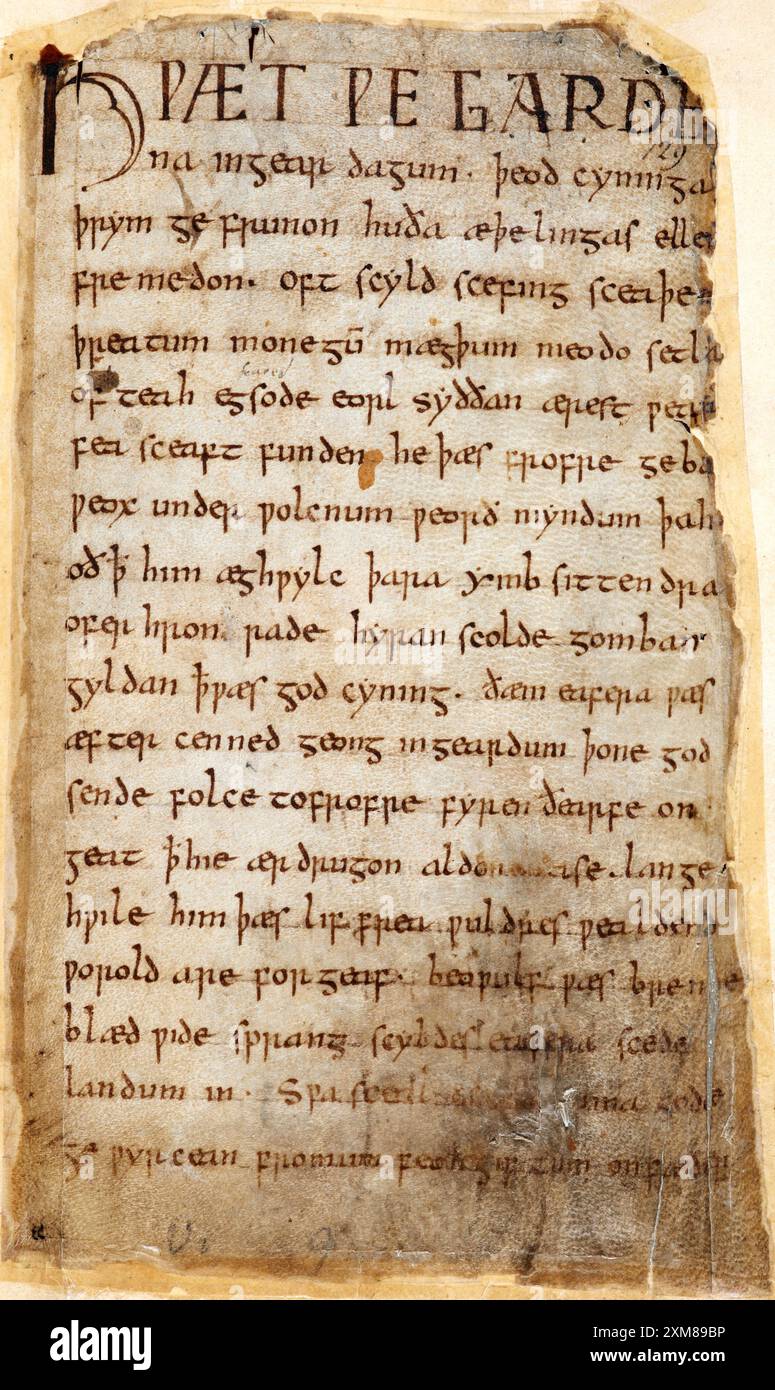 HǷÆT ǷE GARDE
129
na ingear dagum · þeod cyninga
þrym ge frunon huða æþelingas elle
fre medon · oft scyld scefing sceaþe
þreatum monegū mægþum meodo setla
of teah egsode eorl syððan ærest ƿear
fea sceaft funden he þæs frofre geba
ƿeox under ƿolcnum ƿeorð myndum þah
oð ꝥ him æghƿylc þara ymb sittendra
ofer hron rade hyran scolde gomban
gyldan ꝥ ƿæs god cyning · ðæm eafera ƿæs
æfter cenned geong ingeardum þone god
sende folce tofrofre fyren ðearfe on
geat ꝥ hie ær drugon aldor ase · lange
hƿile him þæs lif frea ƿuldres ƿealdend
ƿorold are forgeaf · beoƿulf ƿæs breme
blæd ƿide sprang scyldes eafera scede
landum in · Sƿa sceal uma gode
ge ƿyrcean fromum feoh giftum on fæder
alamy
Image ID: 2XM89BP
www.alamy.com